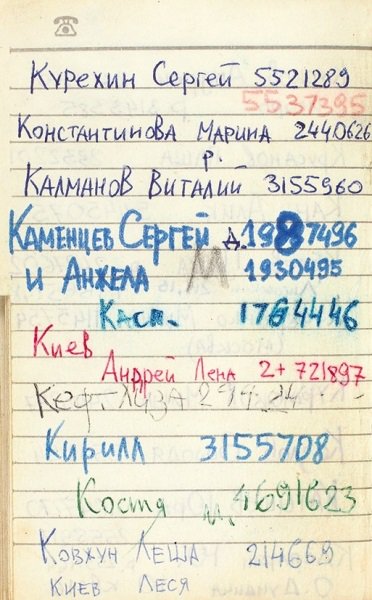 Курехин Сергей 5521289
5537395
Константинова Марина 2440626
р.
Калманов Виталий 3155960
Каменцев Сергей д. 1987496
и Анжела М 1930495
Касп. 1764446
Киев
Андрей Лена 2+721897
Кеф Лиза
Кирилл 3155708
Костя м. 4691623
Ковхун Леша 214669
Киев Леся